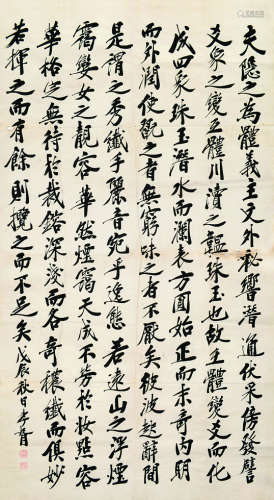 夫隐之為體義主文外秘響潛通伏采傍發譬
爻象之變互體川瀆之韞珠玉也故互體變爻而化
成四象珠玉潛水而瀾表方圓始正而末奇內明
而外潤使翫之者無窮味之者不厭矣彼波起辭間
是謂之秀纖手麗音宛乎逸態若遠山之浮煙
靄孌女之靚容華然煙靄天成不勞於妝點容
華格定無待於裁鎔深淺而各奇穠纖而俱妙
若揮之而有餘則攬之而不足矣戊辰秋日